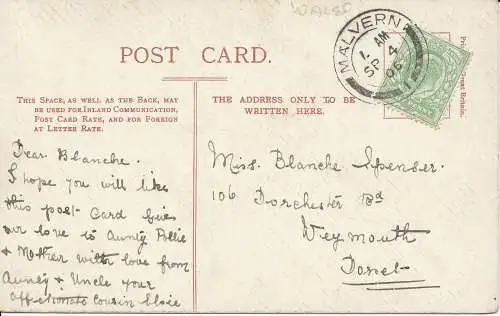 WALES
MALVERN
1. AM
SP 4
06
Printed in Great Britain.
POST CARD.
THIS SPACE, AS WELL AS THE BACK, MAY
BE USED FOR INLAND COMMUNICATION,
POST CARD RATE, AND FOR FOREIGN
AT LETTER RATE.
THE ADDRESS ONLY TO BE
WRITTEN HERE.
Dear Blanche.
I hope you will like
this post-Card Give
our love to Aunty Pollie
& Mother with love from
Auney & Uncle your
Affectionate Cousin Elsie
Miss. Blanche Spenser.
106 Dorchester Rd
Weymouth
Dorset